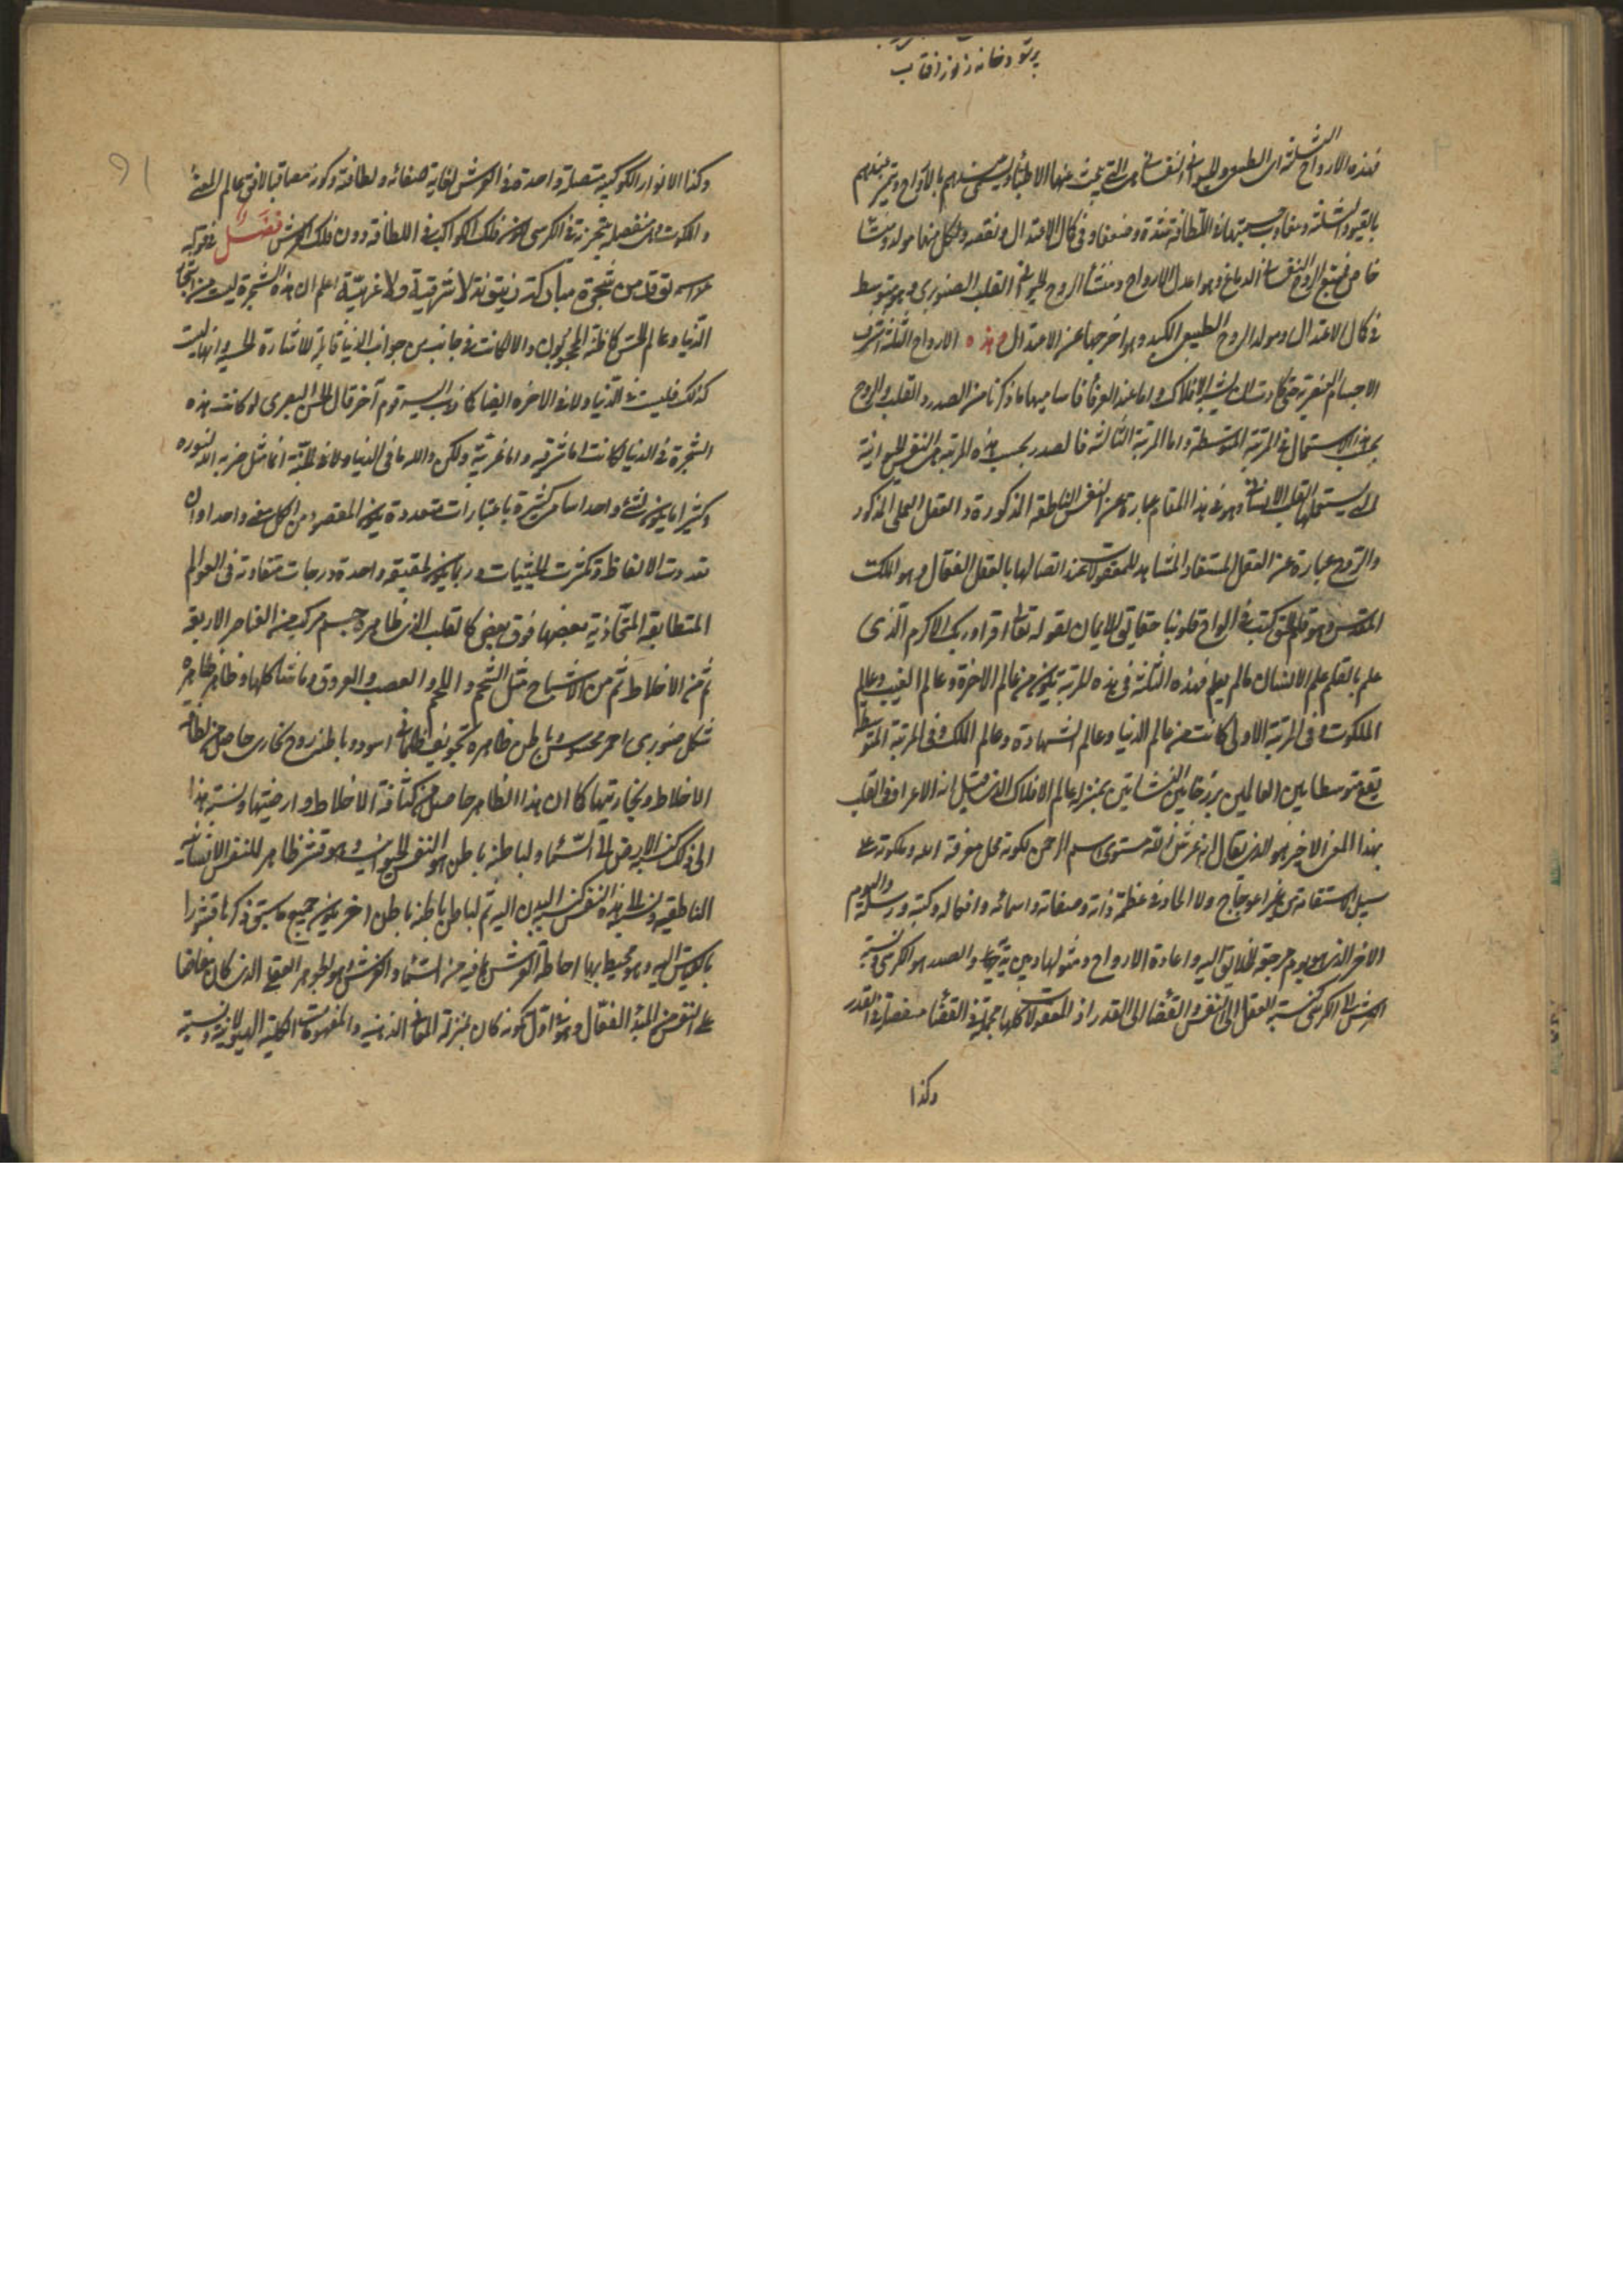 پرتو دخانه ز نور آفتاب
فهذه الارواح الثلثة اى الطبيعى والحيوانى والنفسانى هى التى يبحث عنها الاطباء ويسمى عندهم بالارواح وتميز بينهم
بالقيود الثلثة وتفاوت نسبتها فى اللطافة شدة وضعفا وفى كمال الاعتدال ونقصه ولكل منها مولد ومنشأ
خاص فمنبع الروح النفسانى الدماغ وهو اعدل الارواح ومنشأ الروح الحيوانى القلب الصنوبرى وهو متوسط
فى كمال الاعتدال ومولد الروح الطبيعى الكبد وهو اخرجها عن الاعتدال وهذه الارواح الثلثة اشرف
الاجسام العنصرية حتى كادت ان يشبه الافلاك واما عند العرفاء فاساميها ما ذكرنا من الصدر والقلب والروح
بحسب الاستعمال فى المرتبة المتوسطة واما المرتبة الثالثة فالصدر بحسب هذه المرتبة هى النفس الحيوانية
التى يستعملها القلب الانسانى وهو فى هذا المقام عبارة عن النفس الناطقة المذكورة والعقل العملى المذكور
والروح عبارة عن العقل المستفاد المشاهد للمعقولات عند اتصالها بالعقل الفعال وهو الملك
المقدس وهو قلم الحق كتب فى الواح قلوبنا حقايق الايمان لقوله تعالى اقرا وربك الاكرم الذى
علم بالقلم علم الانسان ما لم يعلم فهذه الثلثة فى هذه المرتبة يكون من عالم الاخرة وعالم الغيب وعالم
الملكوت وفى المرتبة الاولى كانت من عالم الدنيا وعالم الشهادة وعالم الملك وفى المرتبة المتوسطة
يقع متوسطا بين العالمين برزخا بين النشأتين بمنزلة عالم الافلاك الذى قيل انه الاعراف والقلب
بهذا المعنى الاخير هو الذى يقال انه عرش الله مستوى اسم الرحمن لكونه محل معرفة الله وملكوته على
سبيل الاستقامة من غير اعوجاج ولا الحاد فى عظمة ذاته وصفاته واسمائه وافعاله وكتبه ورسله واليوم
الاخر الذى هو يوم مرجعة الخلايق اليه واعادة الارواح ومثولها بين يديه والصدر هو الكرسى ونسبة
العرش الى الكرسى كنسبة العقل الى النفس والقضا الى القدر اذ المعقولات كلها مجملة فى القضا مفصلة فى القدر
وكذا
۹۱
وكذا الانوار الكوكبية متصلة واحدة فى العرش لغاية صفائه ولطافته وكونه مصاقبا لافق عالم المعنى
والملكوت منفصلة متجزية فى الكرسى لكونه فلك الكواكب فى اللطافة دون فلك العرش فصل فى قوله
عز اسمه توقد من شجرة مباركة زيتونة لا شرقية ولا غربية اعلم ان هذه الشجرة ليست من اشجار
الدنيا وعالم الحس كما ظنه المحجوبون والا لكانت فى جانب من جوانب الدنيا قابلة للاشارة الحسية وانها ليست
كذلك فليست فى الدنيا ولا فى الاخرة ايضا كما ذهب اليه قوم آخر قال الحسن البصرى لو كانت هذه
الشجرة فى الدنيا لكانت اما شرقية واما غربية ولكن والله ما فى الدنيا ولا فى الجنة انما مثل ضربه الله لنوره
وكثيرا ما يكون لشئ واحد اسامى كثيرة باعتبارات متعددة يكون المقصود من الكل معنى واحدا وان
تعددت الالفاظ وتكثرت الحيثيات وربما يكون لحقيقة واحدة درجات متفاوتة فى العوالم
المتطابقة المتحاذية بعضها فوق بعض كالقلب الذى ظاهره جسم مركب من العناصر الاربعة
ثم من الاخلاط ثم من الامشاج مثل الشحم واللحم والعصب والعروق وما شاكلها وظاهر ظاهره
شكل صنوبرى احمر محسوس وباطن ظاهره تجويف ظلمانى اسود وباطنه روح بخارى حاصل من لطافة
الاخلاط وبخاريتها كما ان هذا الظاهر حاصل من كثافة الاخلاط وارضيتها ونسبة هذا
الى ذلك كنسبة الارض الى السماء ولباطنه باطن هو النفس الحيوانية وهو قشر ظاهر للنفس الانسانية
الناطقة ونسبة هذه النفس كنسبة البدن اليه ثم لباطن باطنه باطن اخر يكون جميع ما سبق ذكرها قشورا
بالقياس اليه وهو محيط بها احاطة العرش بما فيه من السماء والفرش هو الجوهر العقلى الذى كان فائضا
على النفس من المبدء الفعال وهو فى اول كونه كان بمنزلة المعانى الذهنية والمفهومات الكلية الهيولانية ونسبة